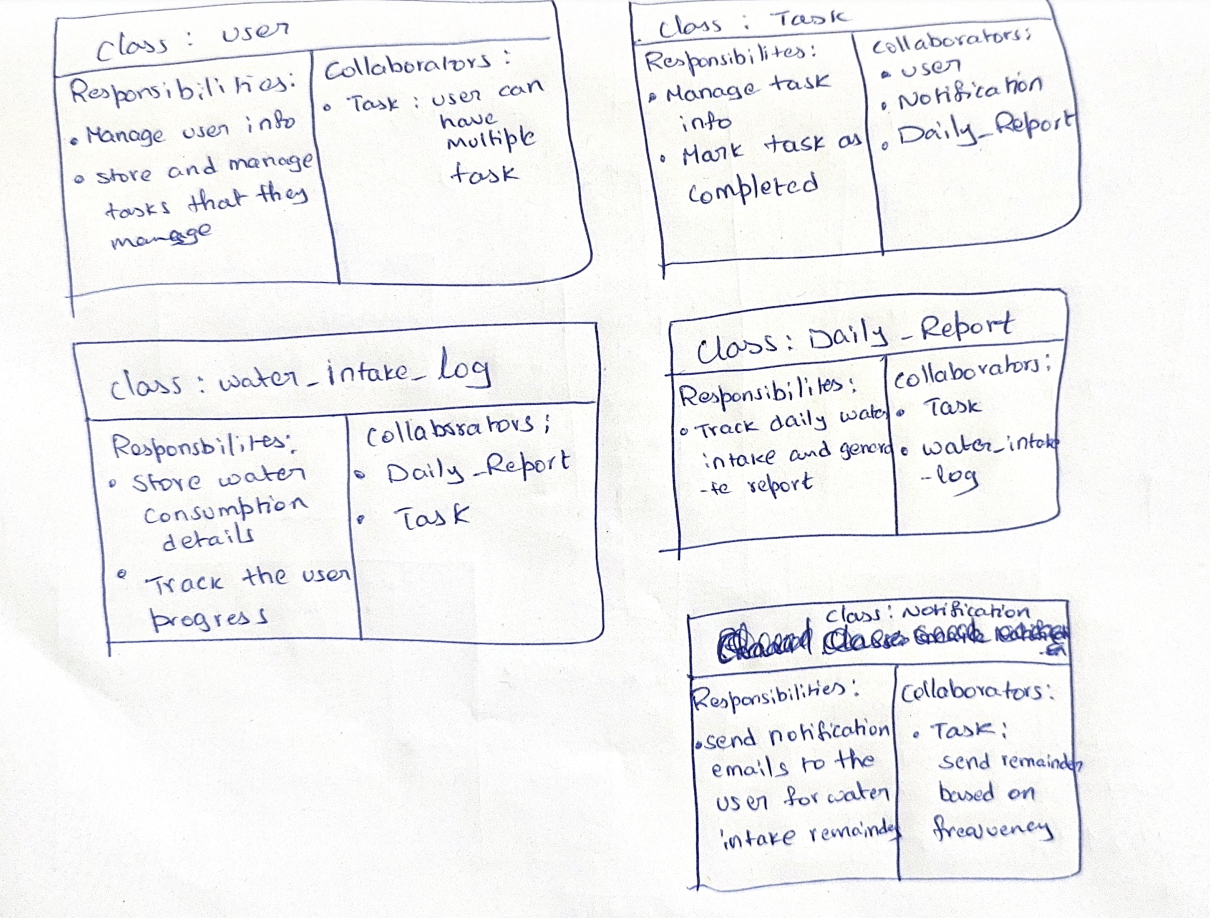 class : user
Responsibilities:
• Manage user info
• store and manage
tasks that they
manage
Collaborators :
• Task : user can
have
multiple
task
class : Task
Responsibilites:
• Manage task
info
• Mark task as
completed
Collaborators:
• user
• Notification
• Daily_Report
class : water_intake_log
Responsbilites:
• Store water
consumption
details
• Track the user
progress
Collaborators:
• Daily_Report
• Task
class: Daily_Report
Responsibilites:
• Track daily water
intake and genera
-te report
collaborators:
• Task
• water_intake
-log
class: Notification
Responsibilities:
• send notification
emails to the
user for water
intake remainder
Collaborators:
• Task:
send remainder
based on
frequency